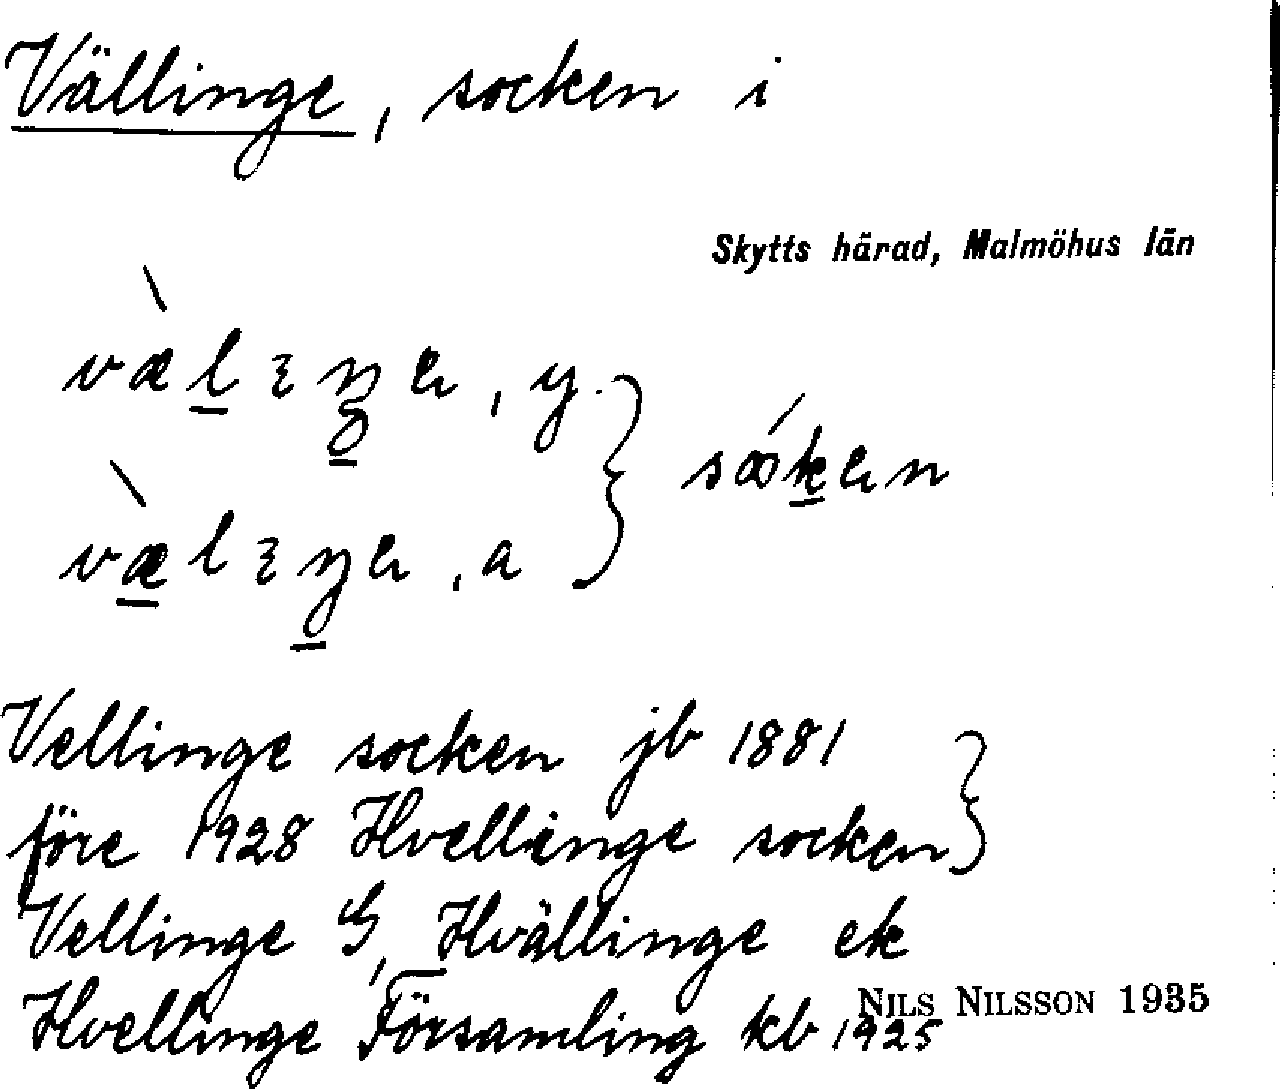 Vällinge, socken i
Skytts härad, Malmöhus län
, y.
, a
Vellinge socken jb 1881
före 1928 Hvellinge socken
Vellinge G, Hvällinge ek
Hvellinge Församling kb 1925
NILS NILSSON 1935